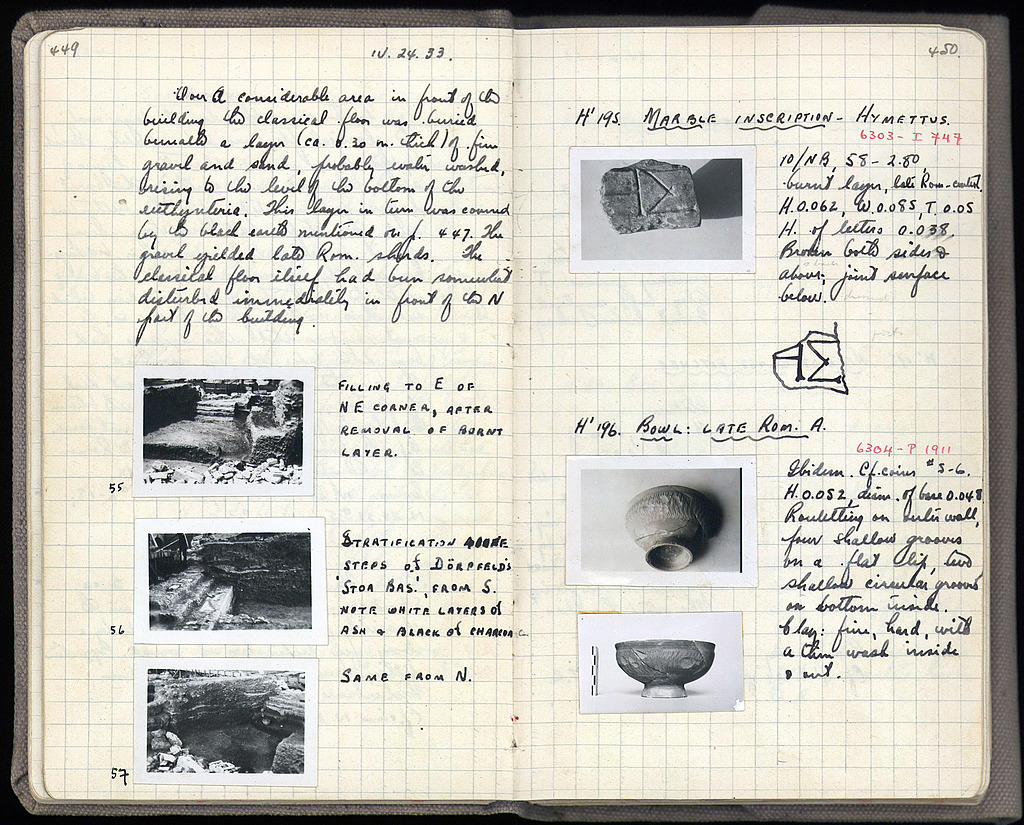 449
IV. 24. 33.
Over a considerable area in front of the
building the classical floor was buried
beneath a layer (ca. 0.30 m. thick) of fine
gravel and sand, probably water washed,
rising to the level of the bottom of the
euthynteria. This layer in turn was covered
by the black earth mentioned on p. 447. The
gravel yielded late Rom. sherds. The
classical floor itself had been somewhat
disturbed immediately in front of the N
part of the building.
FILLING TO E OF
NE CORNER, AFTER
REMOVAL OF BURNT
LAYER.
55
STRATIFICATION
STEPS OF DÖRPFELD'S
'STOA BAS.', FROM S.
NOTE WHITE LAYERS OF
ASH & BLACK OF CHARCOAL
56
SAME FROM N.
57
450.
H' 195. MARBLE INSCRIPTION - HYMETTUS.
6303 - I 747
10/NB, 58 - 2.80
burnt layer, late Rom. - context.
H. 0.062, W. 0.085, T. 0.05
H. of letters 0.038
Broken both sides &
above; joint surface
below.
H' 196. BOWL: LATE ROM. A.
6304 - P 1911
Ibidem. Cf. coins #5-6.
H. 0.052, diam. of base 0.048
Rouletting on outer wall,
four shallow grooves
on a flat lip, two
shallow circular grooves
on bottom inside.
Clay: fine, hard, with
a thin wash inside
& out.